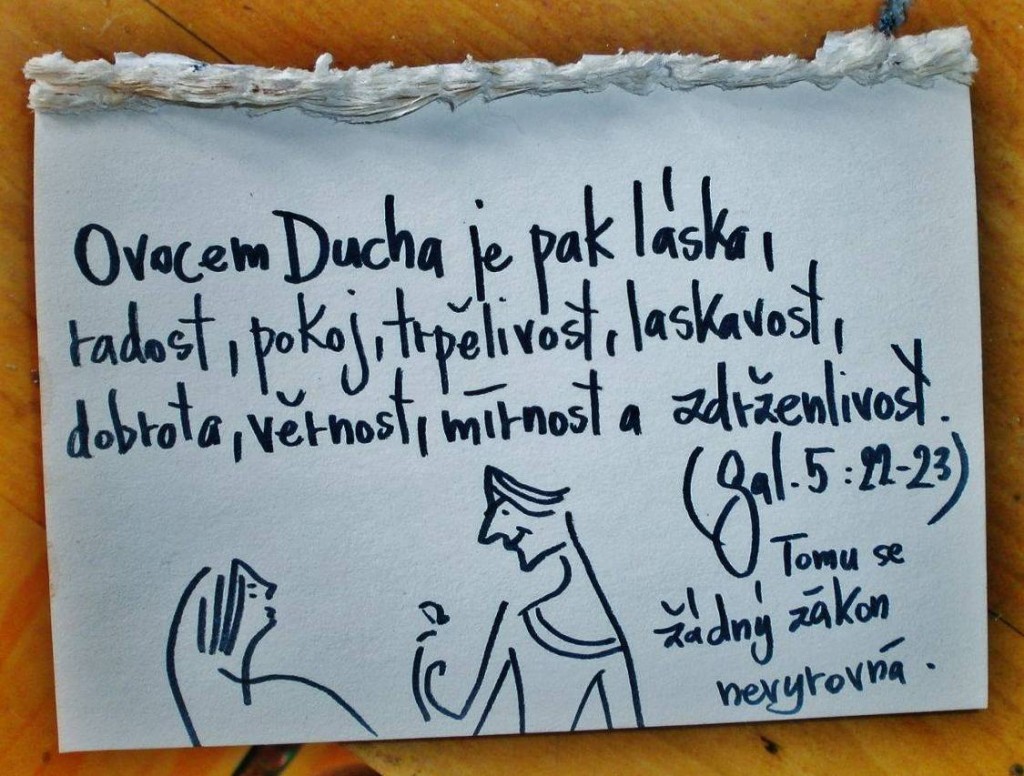 Ovocem Ducha je pak láska,
radost, pokoj, trpělivost, laskavost,
dobrota, věrnost, mírnost a zdrženlivost.
(Gal. 5:22-23)
Tomu se
žádný zákon
nevyrovná.